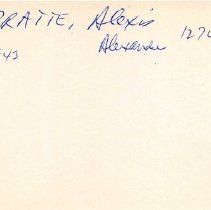 PRATTE, Alexis
Alexander 1270
43